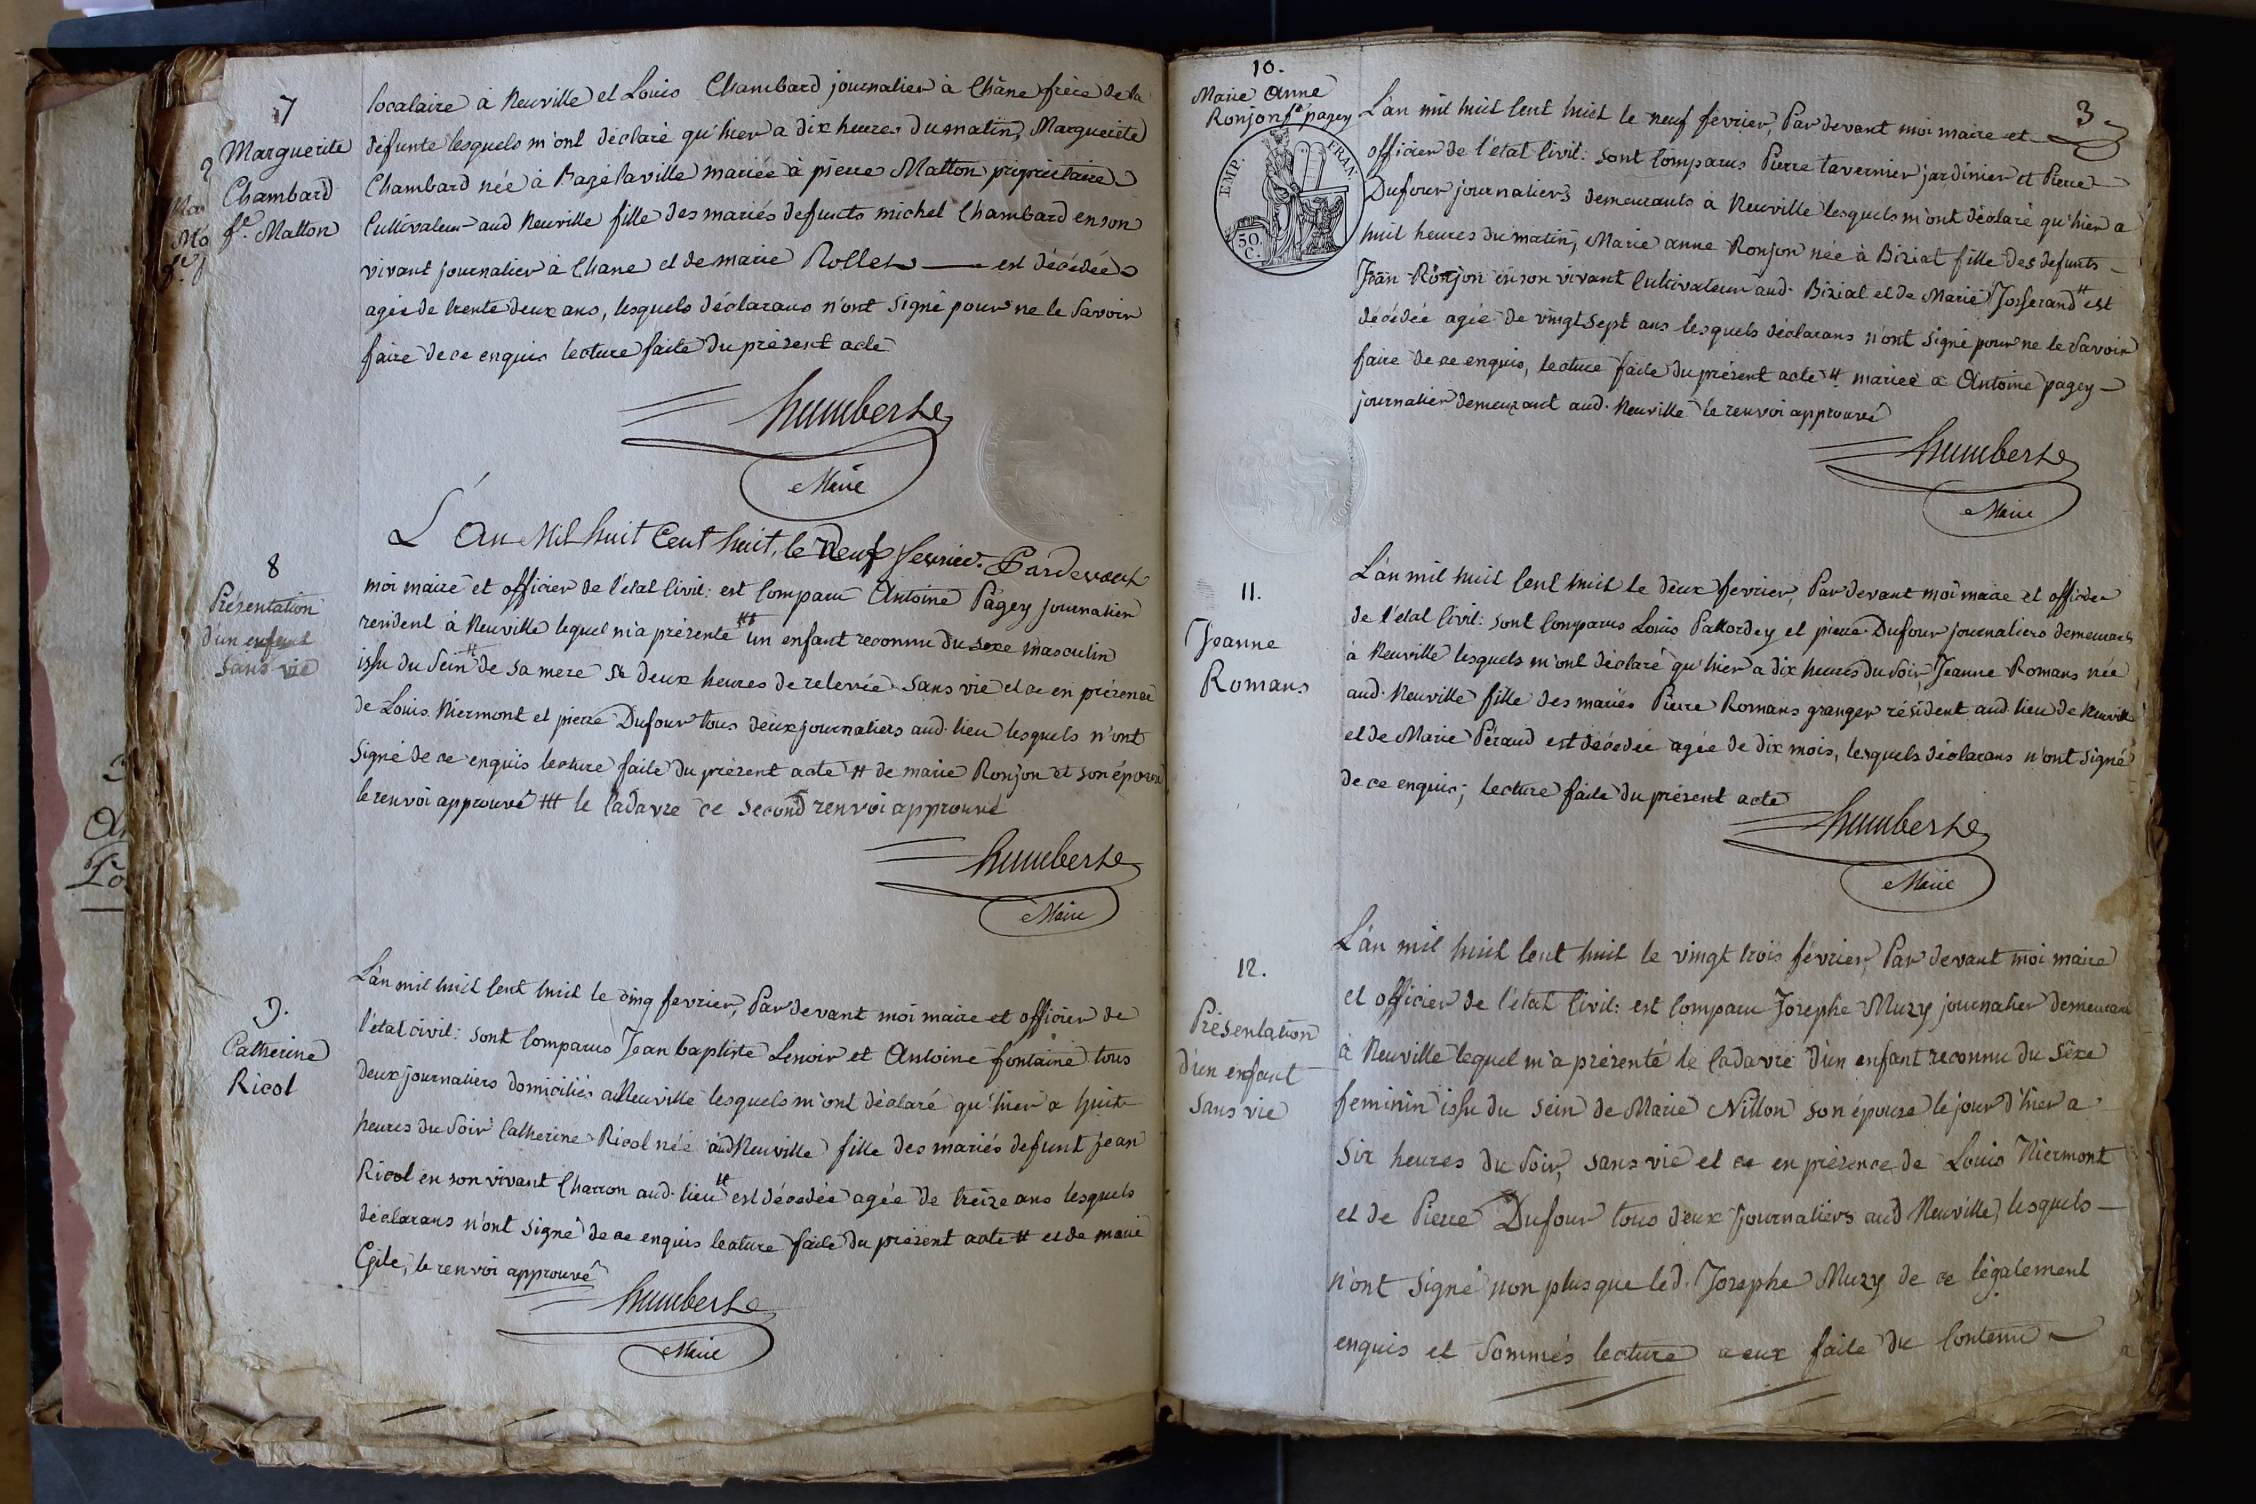 7
Marguerite
Chambard
fe. Matton
localaire à Neuville et Louis Chambard journalier à Chane frère de la
defunte lesquels m'ont déclaré qu'hier a dix heures du matin, Marguerite
Chambard née à Bagé laville mariée à pierre Matton propriétaire
Cultivateur aud Neuville fille des mariés defuncts michel Chambard en son
vivant journalier à Chane et de marie Rollet est décédée
agée de trente deux ans, lesquels déclarans n'ont signé pour ne le savoir
faire de ce enquis lecture faite du présent acte
humberte
Maire
8
Présentation
d'un enfant
sans vie
L'an Mil huit Cent huit, le Neuf fevrier. Pardevant
moi maire et officier de l'état Civil: est Comparu Antoine Pagey journalier
resident à Neuville lequel m'a présenté ## un enfant reconnu du sexe masculin
issu du sein # de sa mere a deux heures de relevée sans vie et ce en présence
de Louis Niermont et pierre Dufour tous deux journaliers aud. lieu lesquels n'ont
signé de ce enquis lecture faite du présent acte # de marie Ronjon et son épouse
le renvoi approuvé ## le Cadavre ce second renvoi approuvé
humberte
Maire
9.
Catherine
Ricol
L'an mil huit Cent huit le cinq fevrier, Par devant moi maire et officier de
l'état civil: sont Comparus Jean baptiste Lenoir et Antoine fontaine tous
deux journaliers domiciliés à Neuville lesquels m'ont déclaré qu'hier a huit
heures du soir Catherine Ricol née aud Neuville fille des mariés defunt jean
Ricol en son vivant Charron aud. lieu # est décédée agée de treize ans lesquels
déclarans n'ont signé de ce enquis lecture faite du présent acte # et de marie
Gile, le renvoi approuvé
humberte
Maire
10.
Marie Anne
Ronjon fe. pagey
EMP. FRAN.
50.
C.
3
L'an mil huit Cent huit le neuf fevrier, Par devant moi maire et
officier de l'état Civil: sont Comparus Pierre tavernier jardinier et Pierre
Dufour journaliers demeurants à Neuville lesquels m'ont déclaré qu'hier a
huit heures du matin, Marie anne Ronjon née à Biziat fille des defunts
Jean Ronjon en son vivant Cultivateur aud. Biziat et de Marie Josserand # est
décédée agée de vingt sept ans lesquels déclarans n'ont signé pour ne le savoir
faire de ce enquis, lecture faite du présent acte # mariée a Antoine pagey
journalier demeurant aud. Neuville le renvoi approuvé
humberte
Maire
11.
Jeanne
Romans
L'an mil huit Cent huit le deux fevrier, Par devant moi maire et officier
de l'état Civil: sont Comparus Louis Pattordey et pierre Dufour journaliers demeurants
à Neuville lesquels m'ont déclaré qu'hier a dix heures du soir, Jeanne Romans née
aud. Neuville fille des mariés Pierre Romans granger résident aud. lieu de Neuville
et de Marie Péraud est décédée agée de dix mois, lesquels déclarans n'ont signé
de ce enquis; lecture faite du présent acte
humberte
Maire
12.
Présentation
d'un enfant
sans vie
L'an mil huit Cent huit le vingt trois fevrier, Par devant moi maire
et officier de l'état Civil: est Comparu Josephe Muzy journalier demeurant
à Neuville lequel m'a présenté le Cadavre d'un enfant reconnu du sexe
feminin issu du sein de Marie Nillon son épouse le jour d'hier a
six heures du soir, sans vie et ce en présence de Louis Niermont
et de Pierre Dufour tous deux journaliers aud Neuville, lesquels
n'ont signé non plus que led. Josephe Muzy de ce légalement
enquis et sommés lecture a eux faite du Contenu